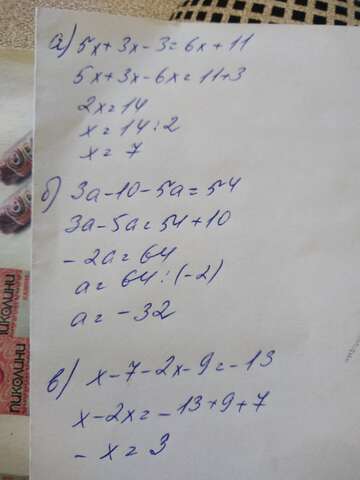 а) 5x+3x-3=6x+11
5x+3x-6x=11+3
2x=14
x=14:2
x=7
б) 3a-10-5a=54
3a-5a=54+10
-2a=64
a=64:(-2)
a=-32
в) x-7-2x-9=-13
x-2x=-13+9+7
-x=3
ПИКОЛИНИ
ПИКОЛИНИ